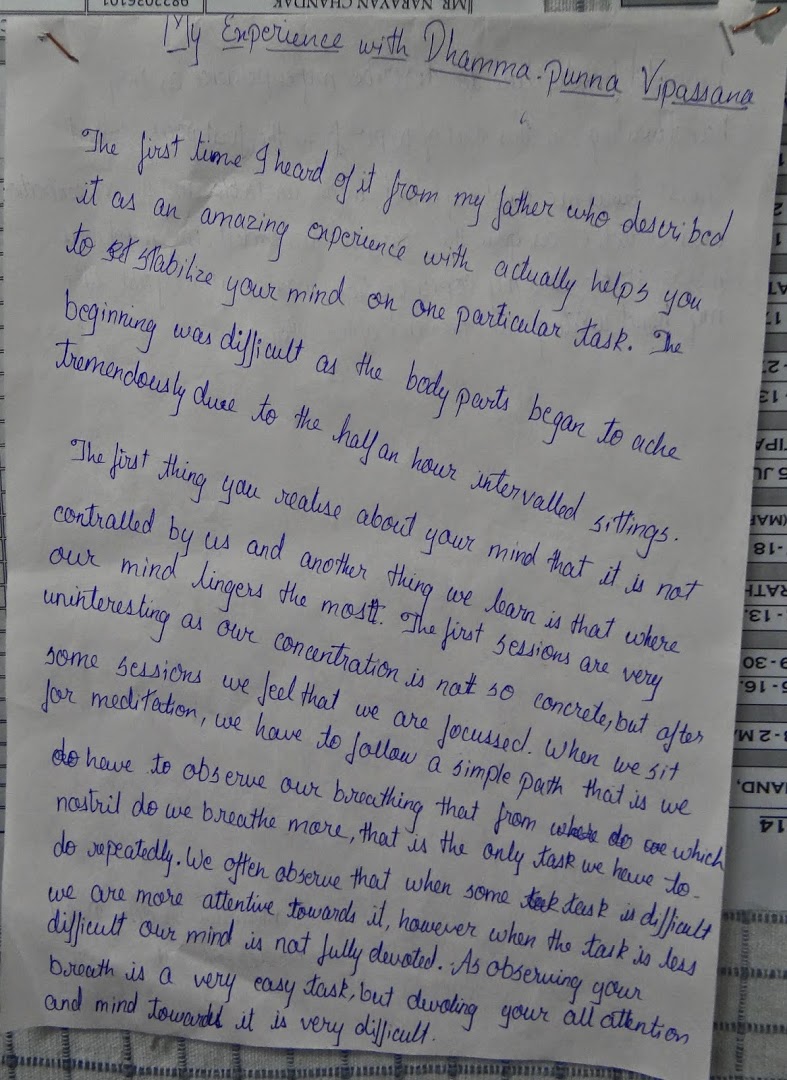 MR NARAYAN CHANDAK
My Experience with Dhamma-Punna Vipassana
The first time I heard of it from my father who described
it as an amazing experience with actually helps you
to st stabilize your mind on one particular task. The
beginning was difficult as the body parts began to ache
tremendously due to the half an hour intervalled sittings.
The first thing you realise about your mind that it is not
contralled by us and another thing we learn is that where
our mind lingers the most. The first sessions are very
uninteresting as our concentration is not so concrete, but after
some sessions we feel that we are focussed. When we sit
for meditation, we have to follow a simple path that is we
do have to observe our breathing that from where do we which
nostril do we breathe more, that is the only task we have to
do repeatedly. We often observe that when some task is difficult
we are more attentive towards it, however when the task is less
difficult our mind is not fully devoted. As observing your
breath is a very easy task, but devoting your all attention
and mind towards it is very difficult.